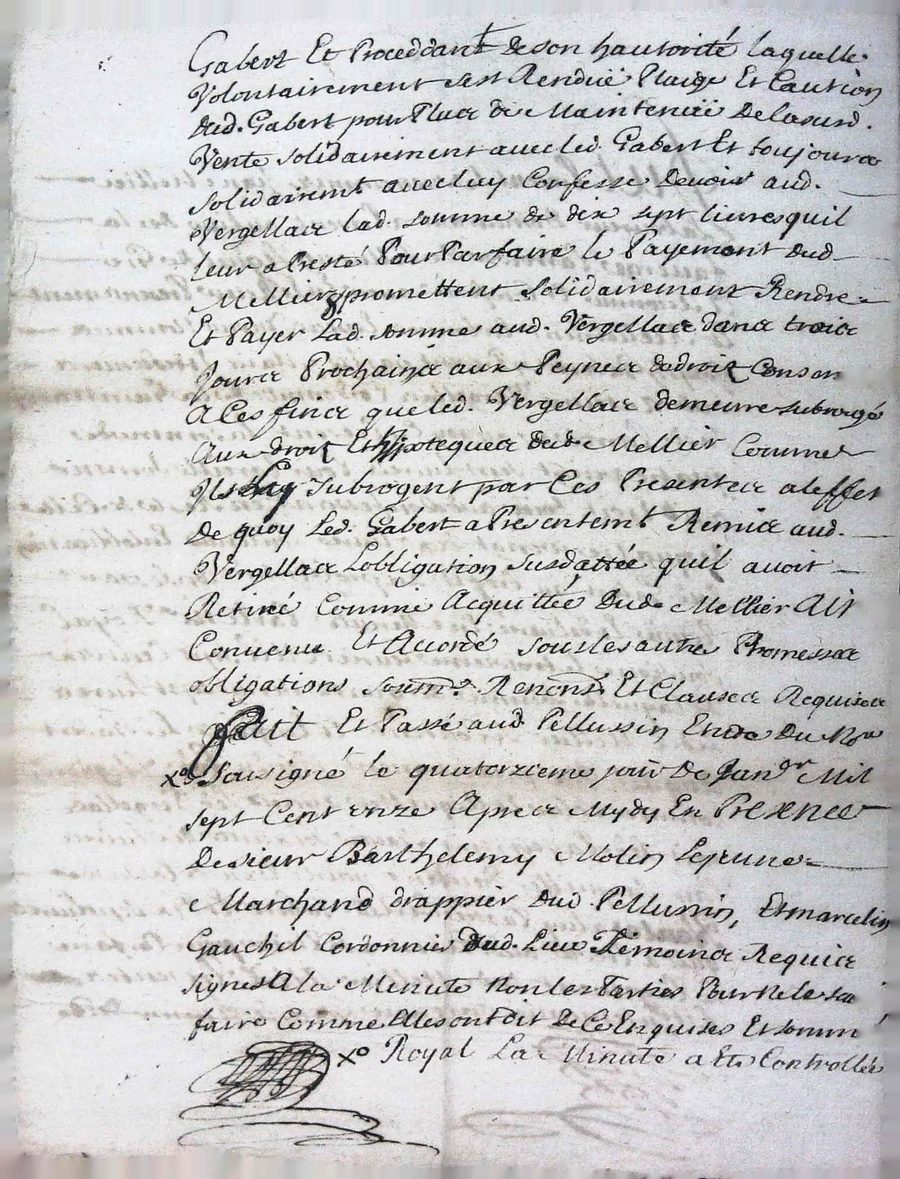 Gabert Et Proceddant de son hautorité laquelle
Volontairement sest Renduë Plaige Et Caution
dud. Gabert pour Plus de Maintenuë De lasusd.
Vente solidairement avecled. Gabert Et toujours
solidairemt avecluy Confesse Devoir aud.
Vergellas lad. somme de dix sept livres quil
leur a Presté Pour Parfaire le Payement dud
Mellier promettent solidairement Rendre
Et Payer Lad. somme aud. Vergellas dans trois
Jours Prochains aux Peynes de droit
A Ces fins queled. Vergellas demeure subrogé
Aux droit Et hipoteques dud. Mellier Comme
Ils Luy subrogent par Ces Presentes a leffet
De quoy Led. Gabert a Presentemt Remis aud.
Vergellas Lobligation susdattée quil avoit
Retiré Comme Acquittée Dud. Mellier
Convenu Et Accordé sous les autres Promesses
obligations soumns. Renons. Et Clauses Requises
fait Et Passé aud. Pellussin Etude Du Nore
xo sousigné le quatorzieme jour De Janvr Mil
sept Cent onze Apres Mydy En Presence
De sieur Barthelemy Molin Lejeune
Marchand drappier Dud Pellussin, Et marcelin
Gauchil Cordonnier Dud. Lieu Témoins Requis
signes A la Minute Non les Parties Pour Ne le sca
faire Comme Elles ont dit De Ce Enquises Et somm
xo Royal La Minute a Eté Controllée